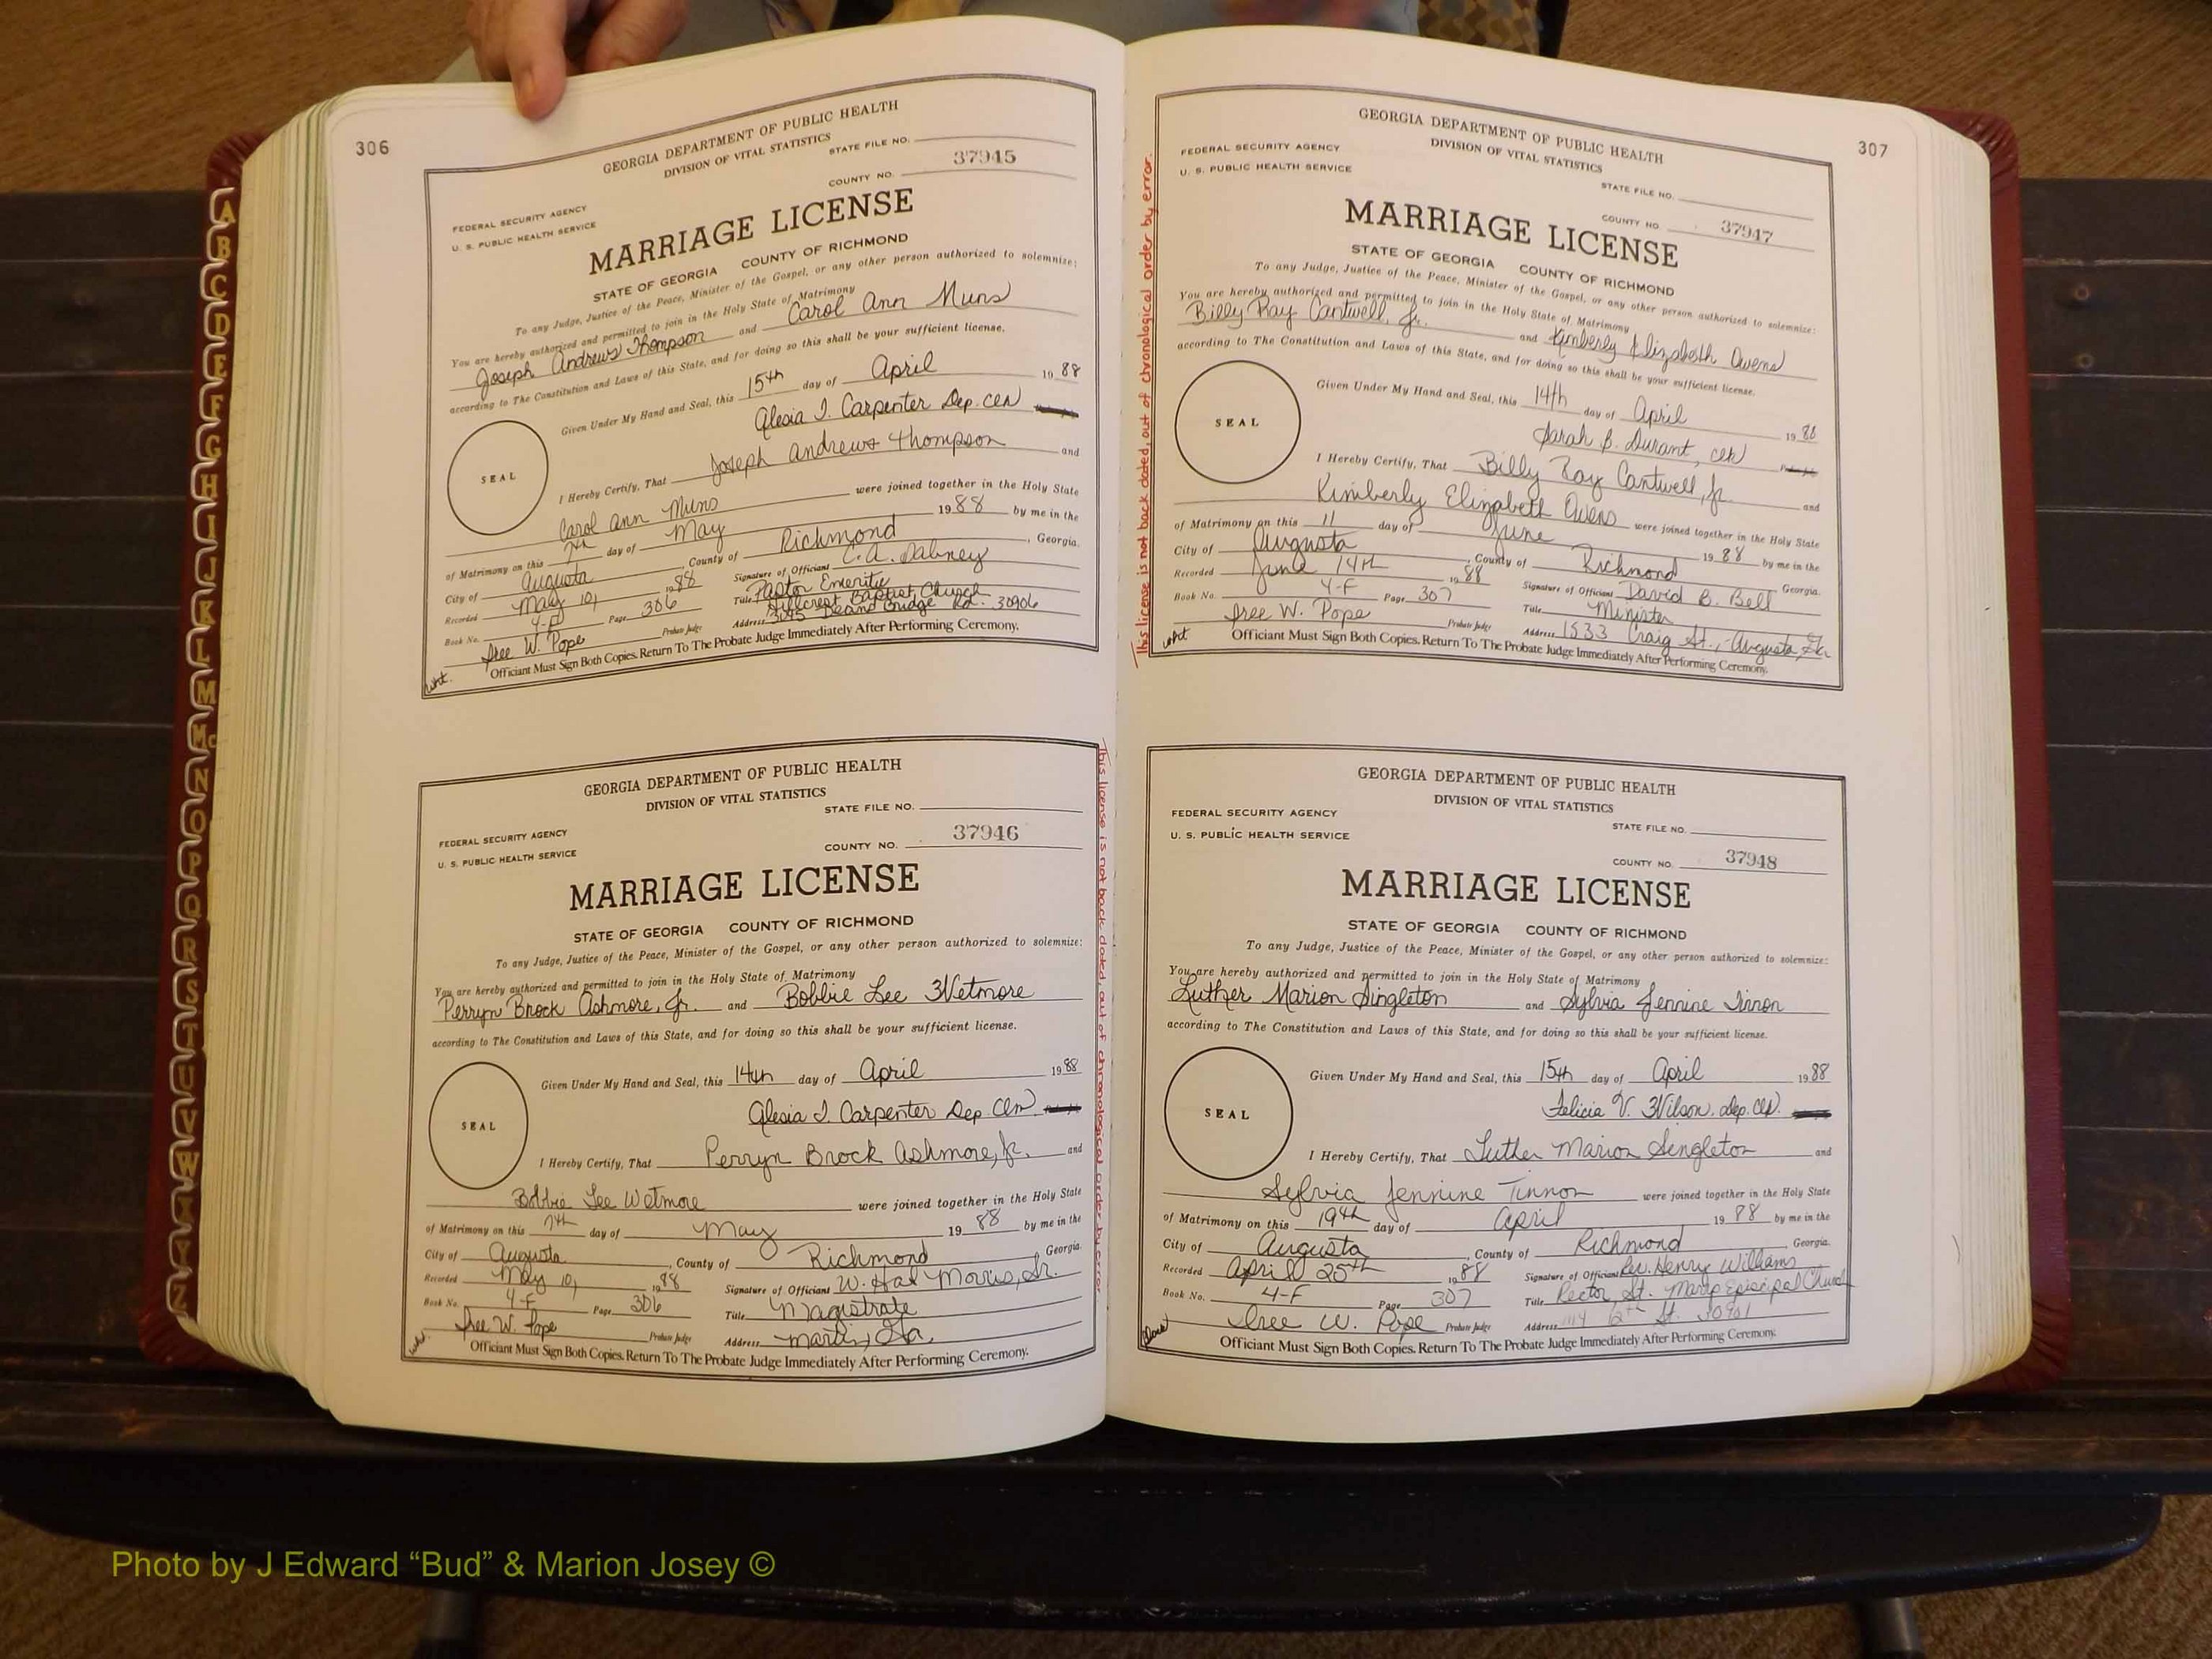 306
GEORGIA DEPARTMENT OF PUBLIC HEALTH
DIVISION OF VITAL STATISTICS
STATE FILE NO.
37945
COUNTY NO.
FEDERAL SECURITY AGENCY
U. S. PUBLIC HEALTH SERVICE
MARRIAGE LICENSE
STATE OF GEORGIA COUNTY OF RICHMOND
To any Judge, Justice of the Peace, Minister of the Gospel, or any other person authorized to solemnize:
You are hereby authorized and permitted to join in the Holy State of Matrimony
Joseph Andrews Thompson and Carol Ann Muns
according to The Constitution and Laws of this State, and for doing so this shall be your sufficient license.
Given Under My Hand and Seal, this 15th day of April 1988
Alesia J. Carpenter Dep. Clk
SEAL
I Hereby Certify, That Joseph Andrews Thompson and
Carol Ann Muns were joined together in the Holy State
of Matrimony on this 7th day of May 1988 by me in the
City of Augusta, County of Richmond, Georgia.
Recorded May 10, 1988 Signature of Officiant C. A. Dabney
Book No. 4-F Page 306 Title Pastor Emeritus
Hillcrest Baptist Church
Address 3045 Deans Bridge Rd. 30906
Free W. Pope Probate Judge
Officiant Must Sign Both Copies. Return To The Probate Judge Immediately After Performing Ceremony.
wht.
This license is not back dated, out of chronological order by error.
GEORGIA DEPARTMENT OF PUBLIC HEALTH
DIVISION OF VITAL STATISTICS
STATE FILE NO.
FEDERAL SECURITY AGENCY
U. S. PUBLIC HEALTH SERVICE
COUNTY NO. 37946
MARRIAGE LICENSE
STATE OF GEORGIA COUNTY OF RICHMOND
To any Judge, Justice of the Peace, Minister of the Gospel, or any other person authorized to solemnize:
You are hereby authorized and permitted to join in the Holy State of Matrimony
Perryn Brock Ashmore, Jr. and Bobbie Lee Wetmore
according to The Constitution and Laws of this State, and for doing so this shall be your sufficient license.
Given Under My Hand and Seal, this 14th day of April 1988
Alesia J. Carpenter Dep. Clk
SEAL
I Hereby Certify, That Perryn Brock Ashmore, Jr. and
Bobbie Lee Wetmore were joined together in the Holy State
of Matrimony on this 7th day of May 1988 by me in the
City of Augusta, County of Richmond, Georgia.
Recorded May 10, 1988 Signature of Officiant W. Hal Morris, Sr.
Book No. 4-F Page 306 Title Magistrate
Free W. Pope Probate Judge Address Ga.
Officiant Must Sign Both Copies. Return To The Probate Judge Immediately After Performing Ceremony.
wht.
307
This license is not back dated, out of chronological order by error.
GEORGIA DEPARTMENT OF PUBLIC HEALTH
DIVISION OF VITAL STATISTICS
FEDERAL SECURITY AGENCY
U. S. PUBLIC HEALTH SERVICE
STATE FILE NO.
COUNTY NO. 37947
MARRIAGE LICENSE
STATE OF GEORGIA COUNTY OF RICHMOND
To any Judge, Justice of the Peace, Minister of the Gospel, or any other person authorized to solemnize:
You are hereby authorized and permitted to join in the Holy State of Matrimony
Billy Ray Cantwell, Jr. and Kimberly Elizabeth Owens
according to The Constitution and Laws of this State, and for doing so this shall be your sufficient license.
Given Under My Hand and Seal, this 14th day of April 1988
Sarah B. Durant, Clk
SEAL
I Hereby Certify, That Billy Ray Cantwell, Jr. and
Kimberly Elizabeth Owens were joined together in the Holy State
of Matrimony on this 11 day of June 1988 by me in the
City of Augusta, County of Richmond Georgia.
Recorded June 14th 1988 Signature of Officiant David B. Bell
Book No. 4-F Page 307 Title Minister
Free W. Pope Probate Judge Address 1533 Craig St., Augusta, Ga.
Officiant Must Sign Both Copies. Return To The Probate Judge Immediately After Performing Ceremony.
wht
GEORGIA DEPARTMENT OF PUBLIC HEALTH
DIVISION OF VITAL STATISTICS
FEDERAL SECURITY AGENCY
U. S. PUBLIC HEALTH SERVICE
STATE FILE NO.
COUNTY NO. 37948
MARRIAGE LICENSE
STATE OF GEORGIA COUNTY OF RICHMOND
To any Judge, Justice of the Peace, Minister of the Gospel, or any other person authorized to solemnize:
You are hereby authorized and permitted to join in the Holy State of Matrimony
Luther Marion Singleton and Sylvia Jennine Tinnon
according to The Constitution and Laws of this State, and for doing so this shall be your sufficient license.
Given Under My Hand and Seal, this 15th day of April 1988
Felicia V. Wilson, Dep. Clk.
SEAL
I Hereby Certify, That Luther Marion Singleton and
Sylvia Jennine Tinnon were joined together in the Holy State
of Matrimony on this 19th day of April 1988 by me in the
City of Augusta, County of Richmond Georgia.
Recorded April 25th 1988 Signature of Officiant Rev. Henry Williams
Book No. 4-F Page 307 Title Rector St. Marys Episcopal Church
Free W. Pope Probate Judge Address 1114 12th St. 30901
Officiant Must Sign Both Copies. Return To The Probate Judge Immediately After Performing Ceremony.
A
B
C
D
E
F
G
H
I
J
K
L
M
Mc
N
O
P
Q
R
S
T
U
V
W
X
Y
Z
Photo by J Edward “Bud” & Marion Josey ©